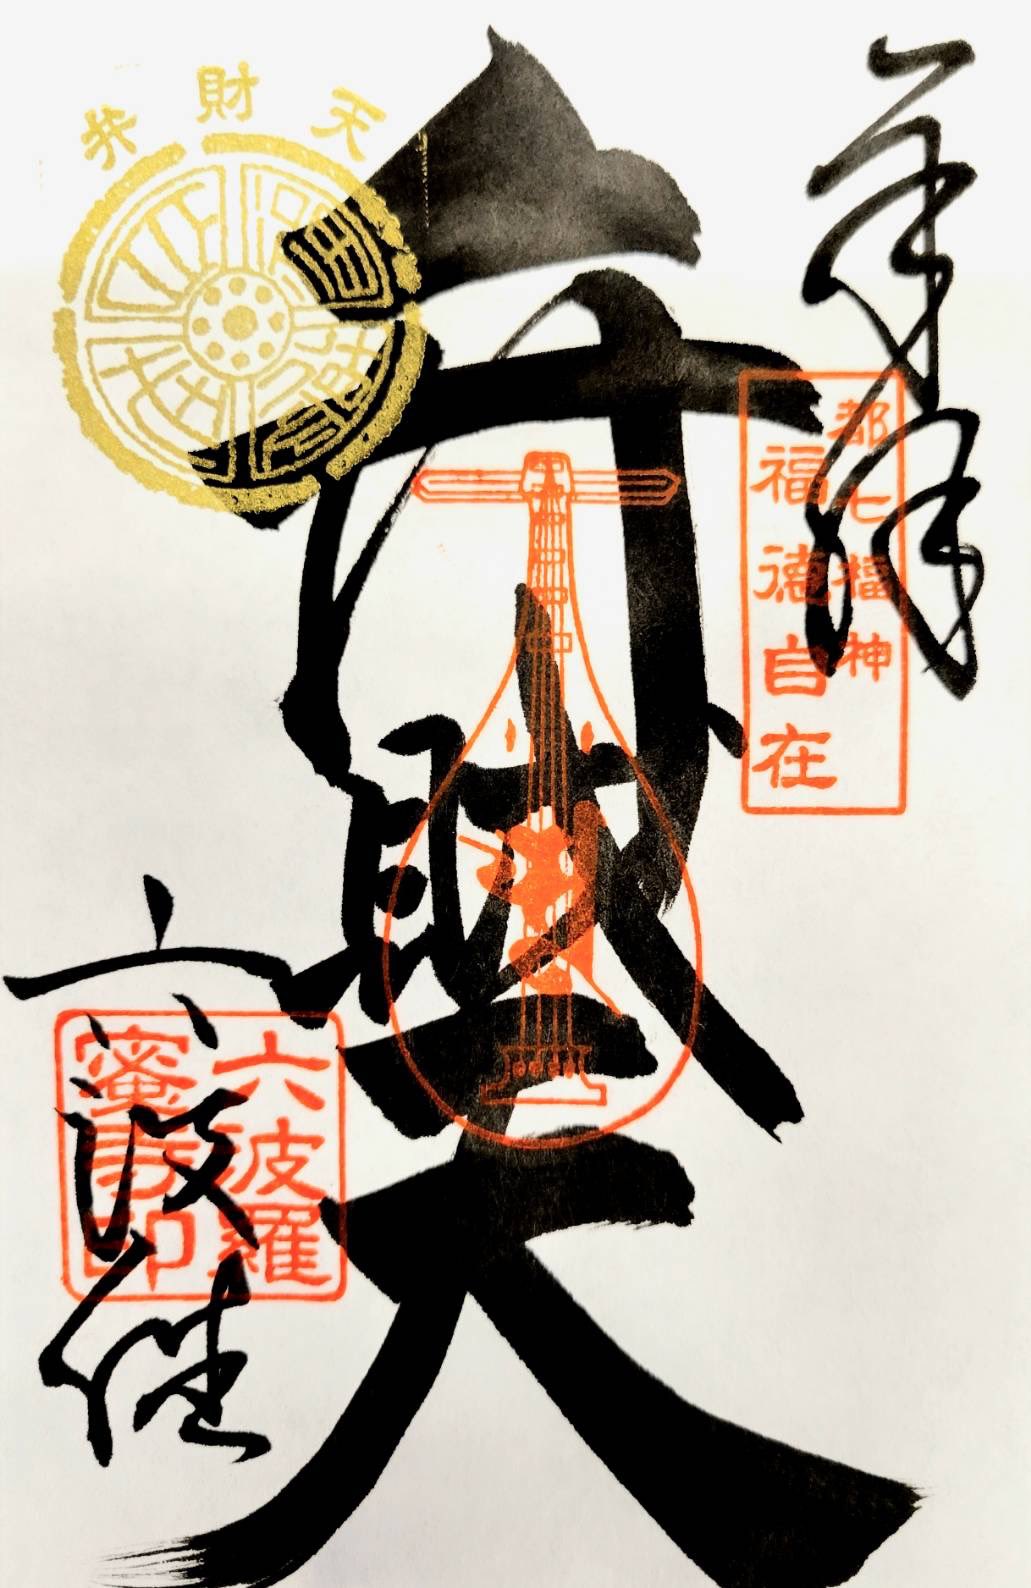 奉拝
都七福神
福徳自在
弁財天
弁財天
六波羅
蜜寺印
六波